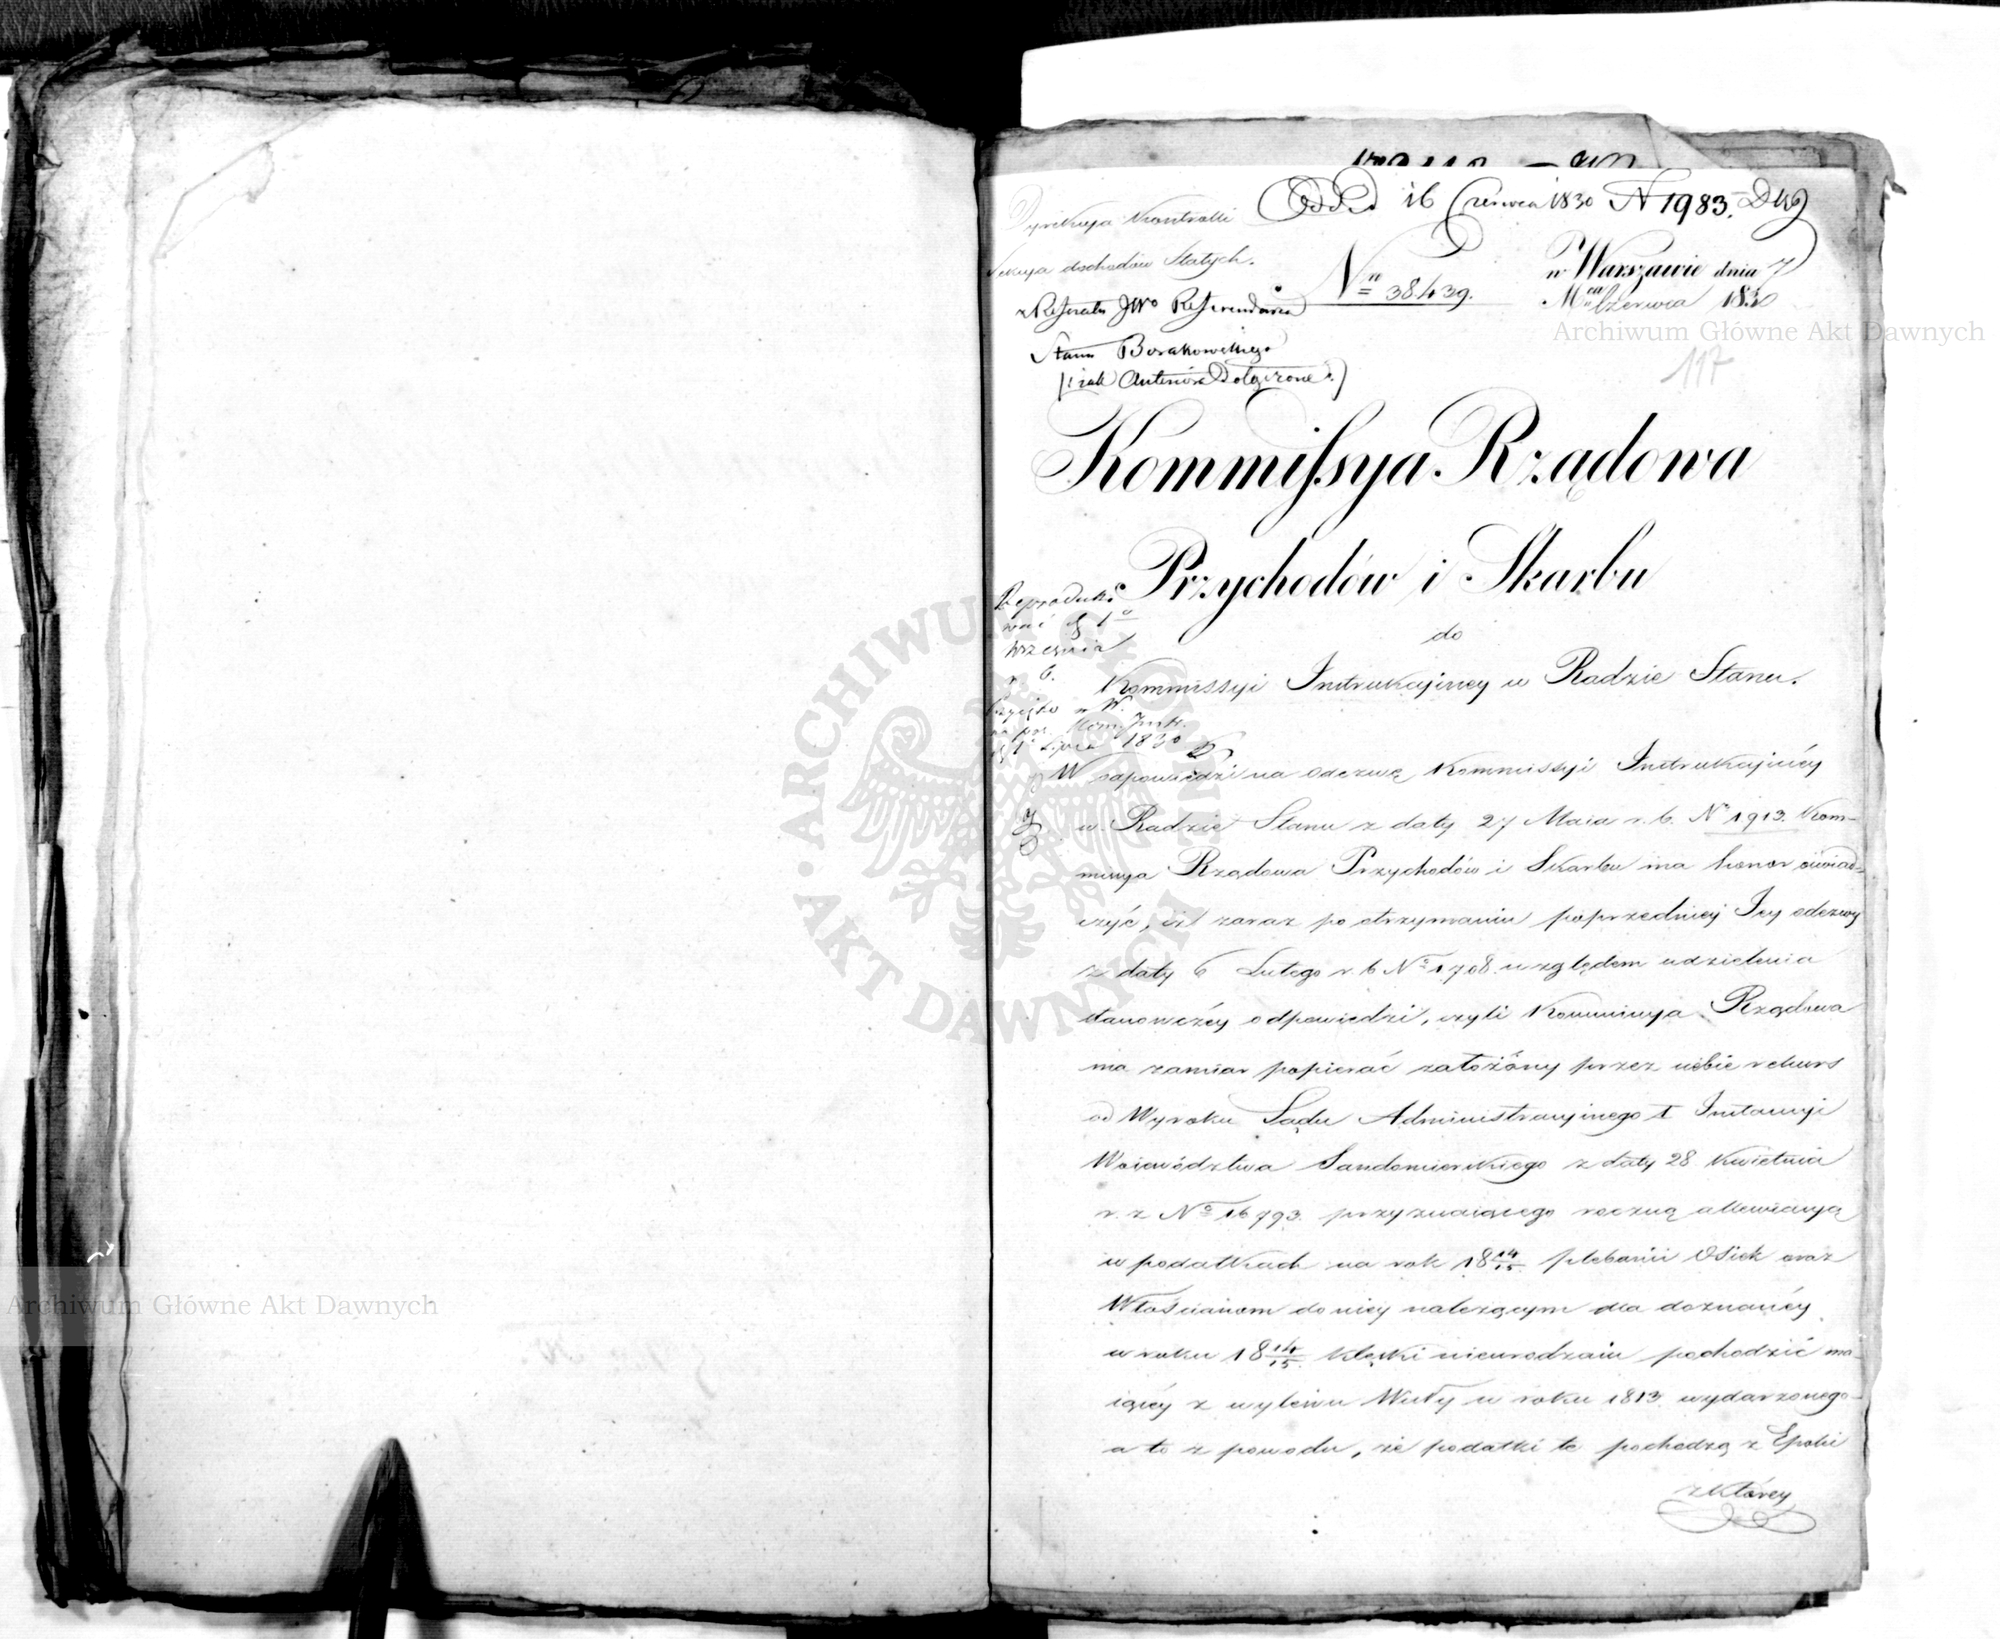 Odd. d. 16 Czerwca 1830 N 1983. DW
Dyrekcya Kontrolli
Sekcya dochodów Stałych.
No 38439.
w Warszawie dnia 7
Mca Czerwca 1830
z Referatu JWo Referendarza
Stanu Borakowskiego
117
Kommissya Rządowa
Przychodów i Skarbu
do
Kommissyi Instrukcyiney w Radzie Stanu.
Reproduko
wać d 1o
Września
r. b.
na pos. Kom. Instr.
d 1 Lipca 1830
W odpowiedzi na odezwę Kommissyi Instrukcyiney
w Radzie Stanu z daty 27 Maia r. b. No 1913. Kom-
missya Rządowa Przychodów i Skarbu ma honor oświad-
czyć, iż zaraz po otrzymaniu poprzedniey Jey odezwy
z daty 6 Lutego r. b No 1708. względem udzielenia
stanowczéy odpowiedzi, czyli Kommissya Rządowa
ma zamiar popierać założóny przez siebie rekurs
od Wyroku Sądu Administracyinego I Instancyi
Województwa Sandomierskiego z daty 28 Kwietnia
r. z No 16793. przyznaiącego roczną allewiacyą
w podatkach na rok 18 14/15 plebanii Osiek oraz
Włościanom do niey należącym dla doznanéy
w roku 18 14/15 klęski nieurodzaiu pochodzić ma-
iącéy z wylewu Wisły w roku 1813 wydarzonego
a to z powodu, że podatki te pochodzą z Epoki
z któréy
Archiwum Główne Akt Dawnych
ARCHIWUM GŁÓWNE AKT DAWNYCH
Archiwum Główne Akt Dawnych